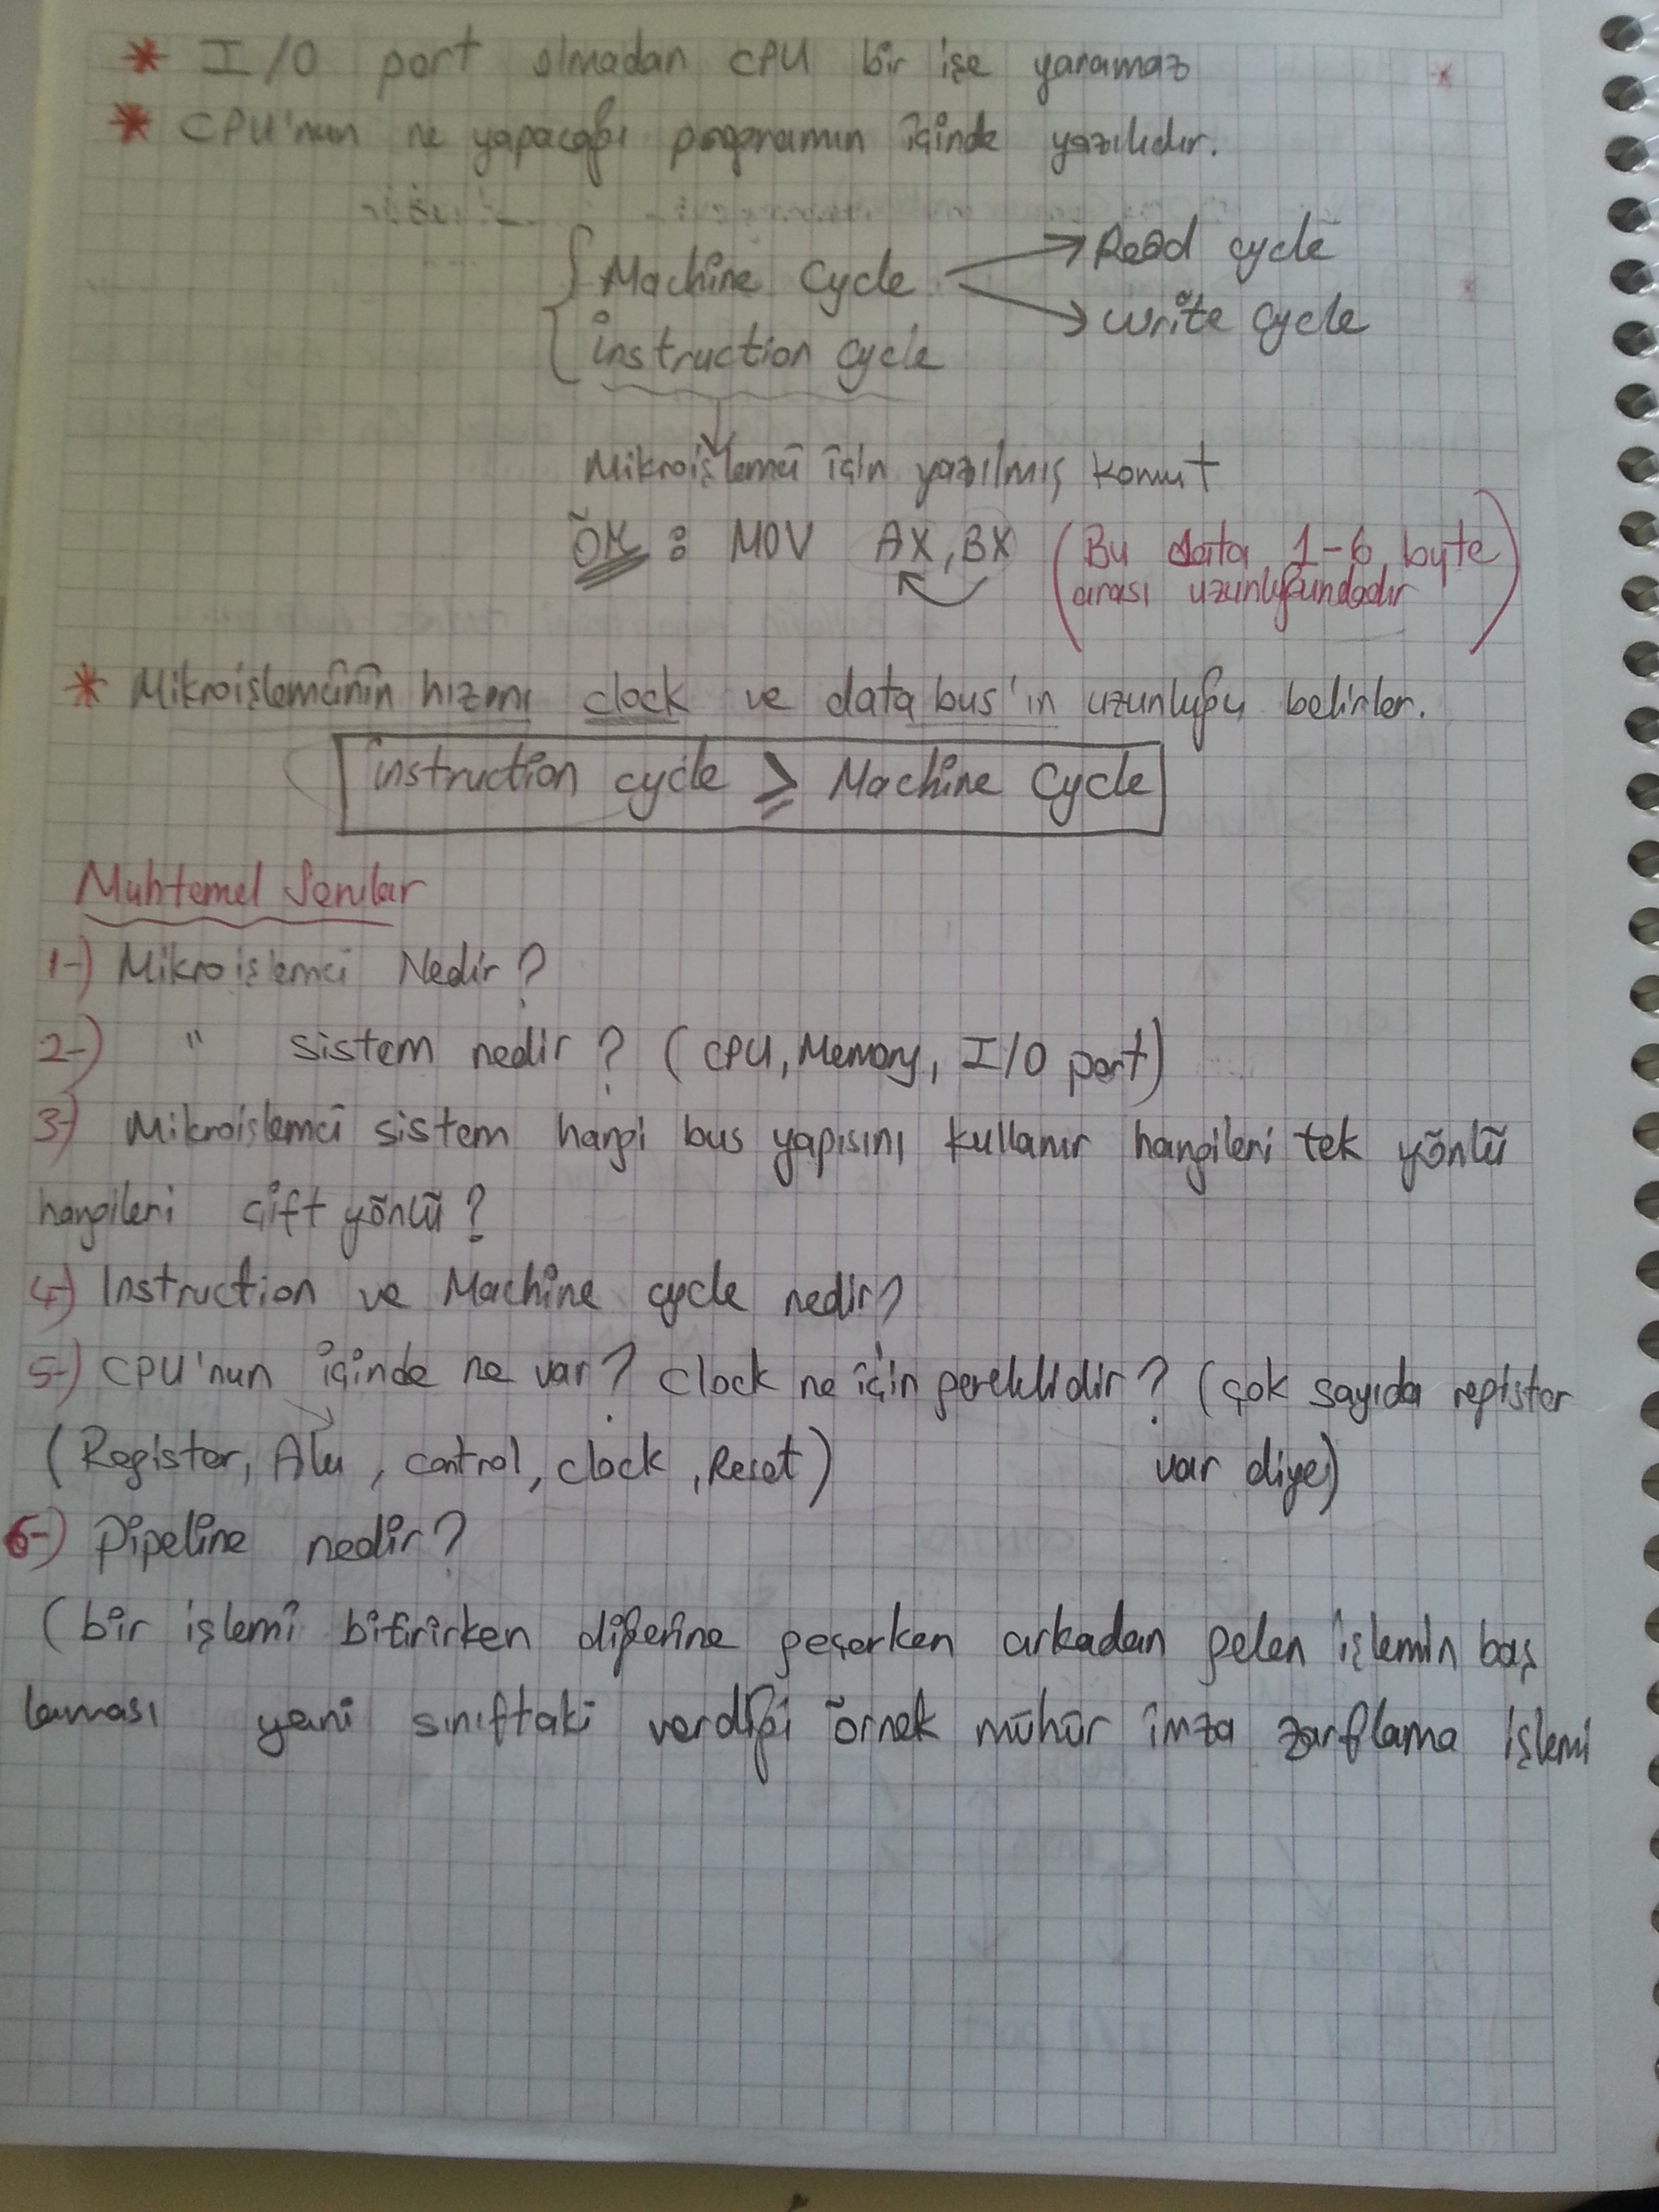 * I/O port olmadan CPU bir işe yaramaz
* CPU'nun ne yapacağı programın içinde yazılıdır.
Machine Cycle → Read cycle
→ write cycle
instruction cycle
Mikroişlemci için yazılmış komut
ÖR : MOV AX, BX (Bu data 1-6 byte
arası uzunluğundadır)
* Mikroişlemcinin hızını clock ve data bus'ın uzunluğu belirler.
instruction cycle ≥ Machine Cycle
Muhtemel Sorular
1-) Mikroişlemci Nedir?
2-) " sistem nedir? (CPU, Memory, I/O port)
3-) Mikroişlemci sistem hangi bus yapısını kullanır hangileri tek yönlü
hangileri çift yönlü?
4-) Instruction ve Machine cycle nedir?
5-) CPU'nun içinde ne var? Clock ne için gereklidir? (çok sayıda register
(Register, Alu, control, clock, Reset) var diye)
6-) Pipeline nedir?
(bir işlemi bitirirken diğerine geçerken arkadan gelen işlemin baş
laması yani sınıftaki verdiği örnek mühür imza zarflama işlemi